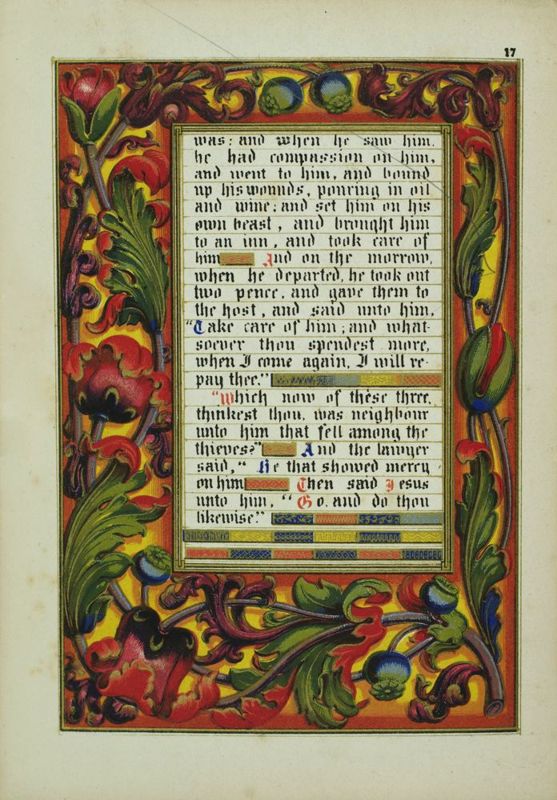 17
was: and when he saw him,
he had compassion on him,
and went to him, and bound
up his wounds, pouring in oil
and wine: and set him on his
own beast, and brought him
to an inn, and took care of
him And on the morrow,
when he departed, he took out
two pence, and gave them to
the host, and said unto him,
"Take care of him; and what-
soever thou spendest more,
when I come again, I will re-
pay thee."
"Which now of these three,
thinkest thou, was neighbour
unto him that fell among the
thieves?" And the lawyer
said, "He that showed mercy
on him Then said Jesus
unto him, "Go, and do thou
likewise."